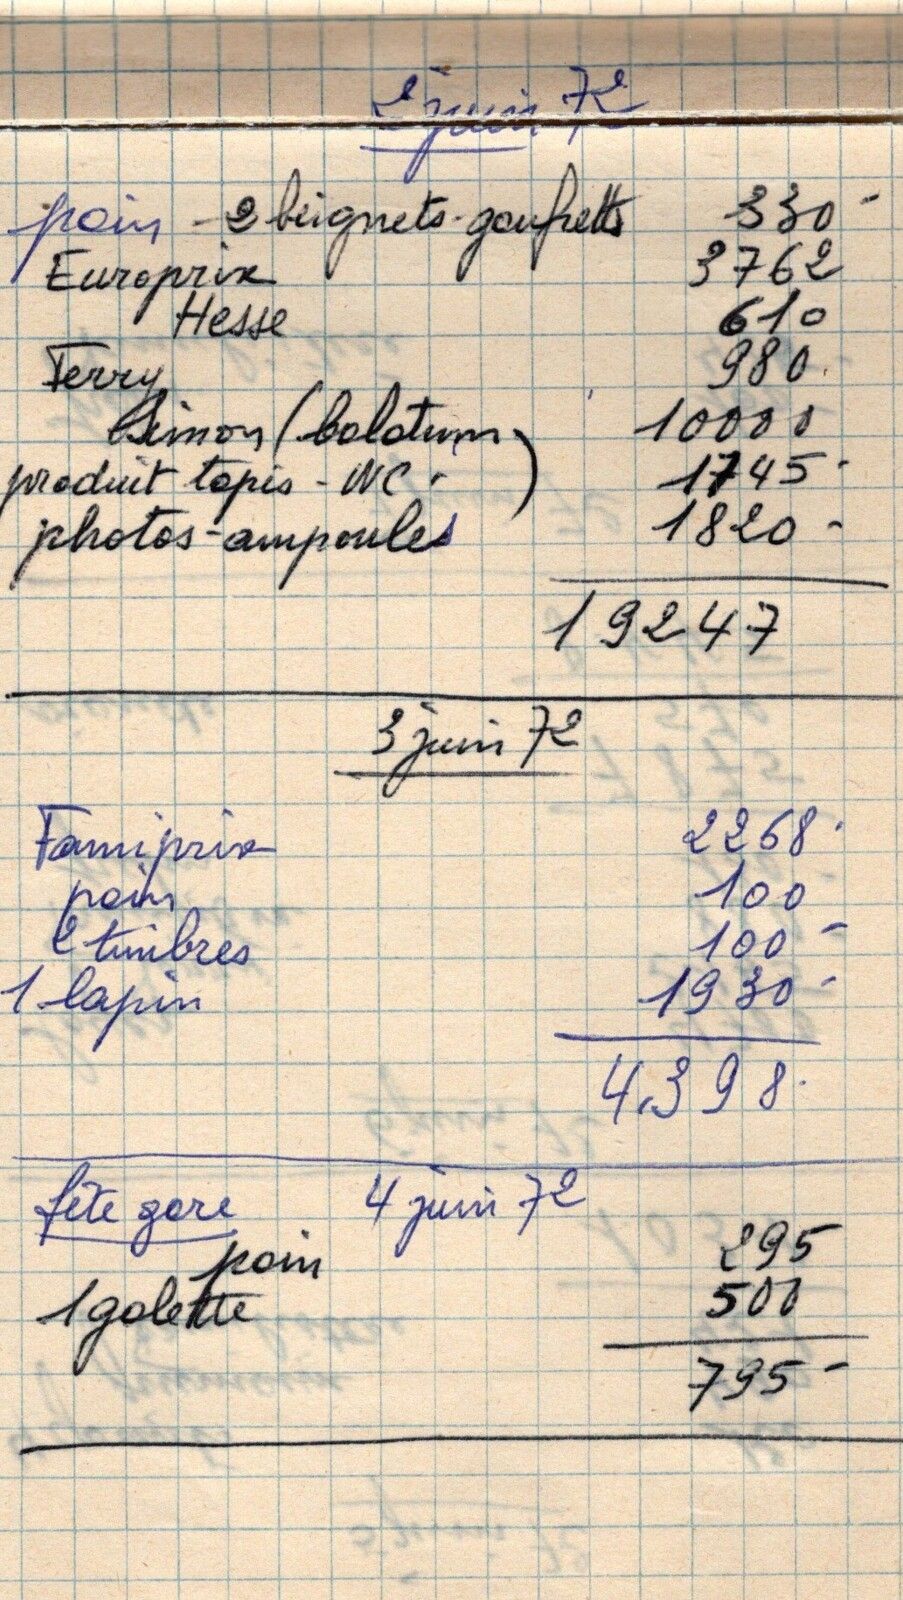 2 juin 72
pain - 2 beignets - gaufrette 330 -
Europrix 3762
Hesse 610
Ferry 980
Simon (balatum) 10000
produit tapis - WC. 1745 -
photos - ampoules 1820 -
19247
3 juin 72
Famiprix 2268.
pain 100
2 timbres 100 -
1 lapin 1930 -
4.398.
fête gare 4 juin 72
pain 295
1 galette 500
795 -